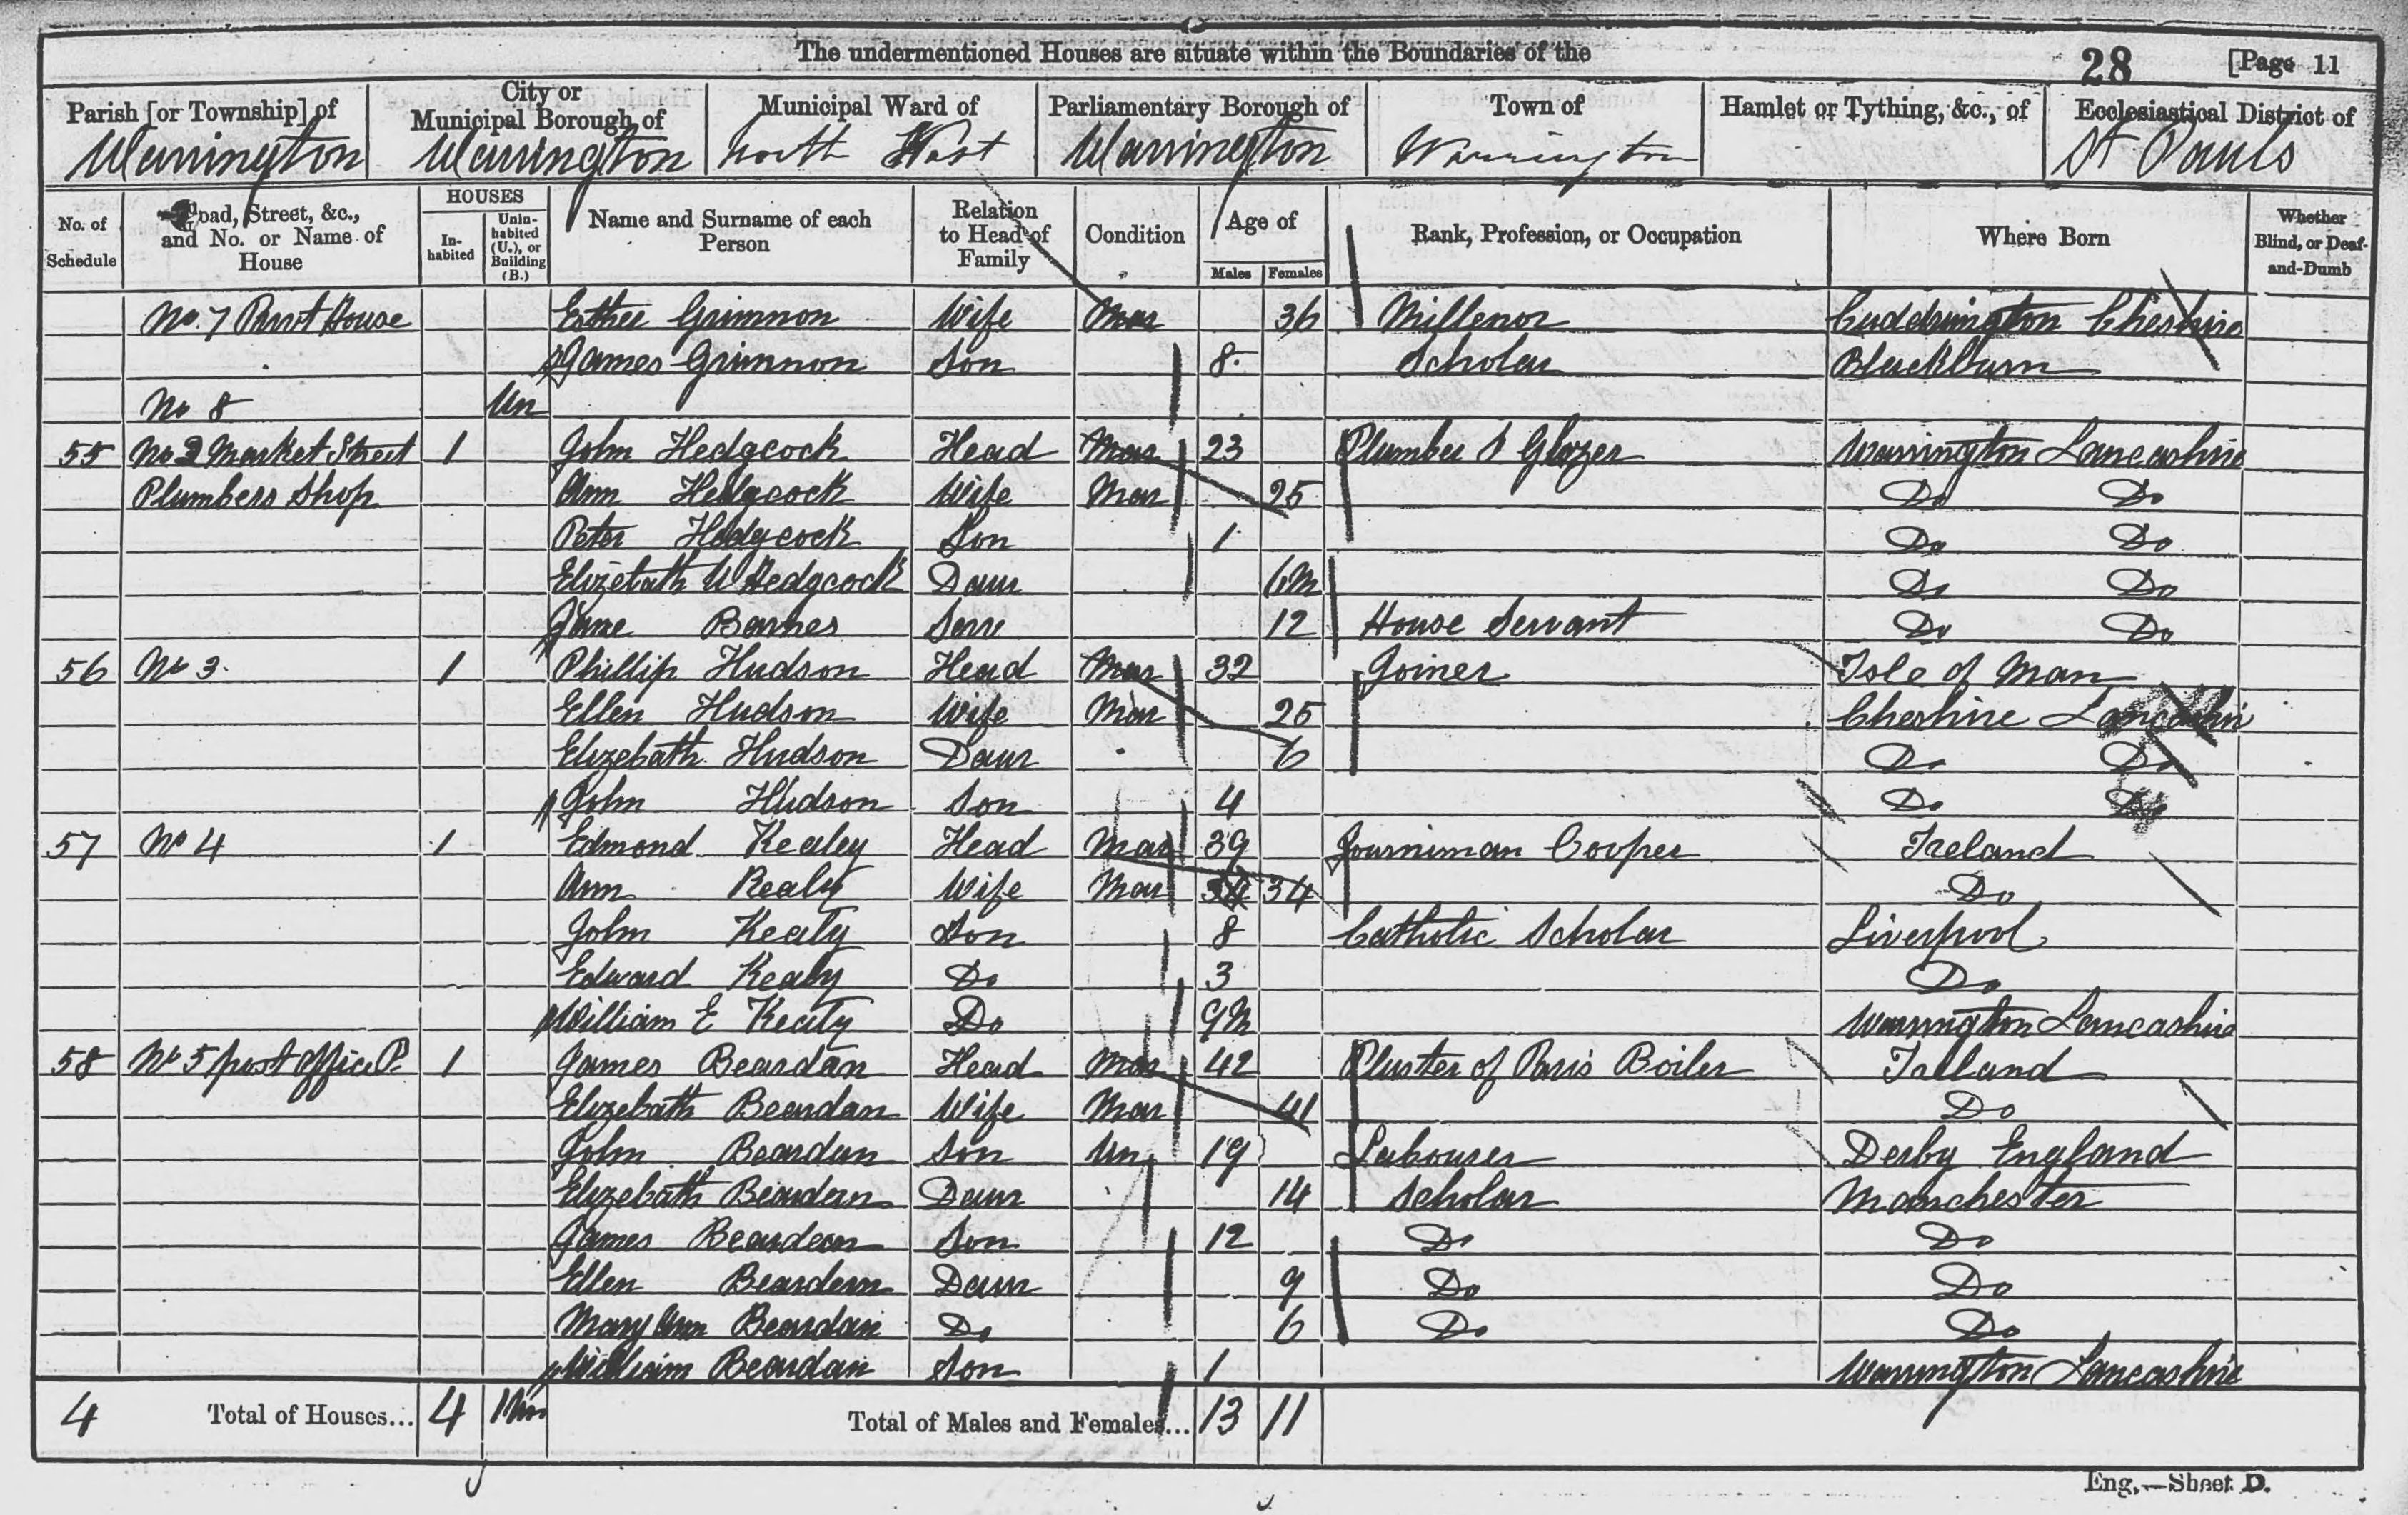 The undermentioned Houses are situate within the Boundaries of the 28 [Page 11
Parish [or Township] of City or Municipal Borough of Municipal Ward of Parliamentary Borough of Town of Hamlet or Tything, &c., of Ecclesiastical District of
Warrington Warrington North West Warrington Warrington St Pauls
No. of Schedule Road, Street, &c., and No. or Name of House HOUSES Inhabited Uninhabited (U.), or Building (B.) Name and Surname of each Person Relation to Head of Family Condition Age of Males Females Rank, Profession, or Occupation Where Born Whether Blind, or Deaf-and-Dumb
No. 7 House Esther Grimnon Wife Mar 36 Millenor Cuddington Cheshire
James Grimnon Son 8 Scholar Blackburn
No 8 Un
55 No 2 Market Street 1 John Hedgcock Head Mar 23 Plumber & Glazer Warrington Lancashire
Plumbers Shop Ann Hedgcock Wife Mar 25 Do Do
Peter Hedgcock Son 1 Do Do
Elizebath W Hedgcock Daur 6M Do Do
Jane Barnes Serv 12 House Servant Do Do
56 No 3. 1 Phillip Hudson Head Mar 32 Joiner Isle of Man
Ellen Hudson Wife Mar 25 Cheshire Lancashir
Elizebath Hudson Daur 6 Do Do
John Hudson Son 4 Do Do
57 No 4 1 Edmond Kealey Head Mar 39 Journiman Cooper Ireland
Ann Kealy Wife Mar 34 34 Do
John Kealy Son 8 Catholic Scholar Liverpool
Edward Kealy Do 3 Do
William E Kealy Do 9M Warrington Lancashire
58 No 5 post office P. 1 James Beardan Head Mar 42 Plaster of Paris Boiler Ireland
Elizebath Beardan Wife Mar 41 Do
John Beardan Son Un 19 Labourer Derby England
Elizebath Beardan Daur 14 Scholar Manchester
James Beardan Son 12 Do Do
Ellen Beardan Daur 9 Do Do
Mary Ann Beardan Do 6 Do Do
William Beardan Son 1 Warrington Lancashire
4 Total of Houses... 4 1 Un Total of Males and Females... 13 11
Eng.—Sheet D.